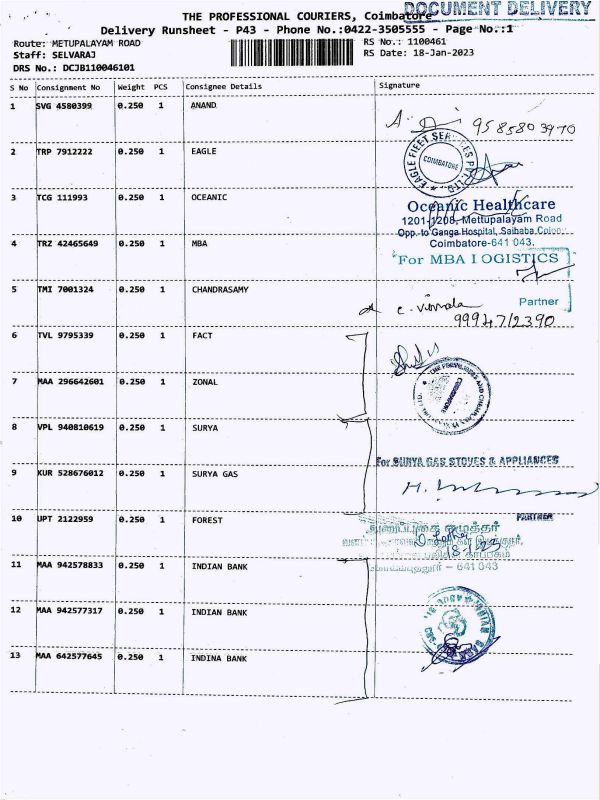 DOCUMENT DELIVERY
THE PROFESSIONAL COURIERS, Coimbatore
Delivery Runsheet - P43 - Phone No.:0422-3505555 - Page No.:1
Route: METUPALAYAM ROAD
Staff: SELVARAJ
DRS No.: DCJB110046101
RS No.: 1100461
RS Date: 18-Jan-2023
S No Consignment No Weight PCS Consignee Details Signature
1 SVG 4580399 0.250 1 ANAND
9585803970
2 TRP 7912222 0.250 1 EAGLE
EAGLE FLEET SERVICES PVT. LTD.
COIMBATORE
3 TCG 111993 0.250 1 OCEANIC
Oceanic Healthcare
1201-1208, Mettupalayam Road
Opp. to Ganga Hospital, Saibaba Colony
Coimbatore-641 043.
4 TRZ 42465649 0.250 1 MBA
For MBA LOGISTICS
Partner
5 TMI 7001324 0.250 1 CHANDRASAMY
9994712390
6 TVL 9795339 0.250 1 FACT
7 MAA 296642601 0.250 1 ZONAL
8 VPL 940810619 0.250 1 SURYA
For SURYA GAS STOVES & APPLIANCES
9 KUR 528676012 0.250 1 SURYA GAS
PARTNER
10 UPT 2122959 0.250 1 FOREST
18.1.23
641 043
11 MAA 942578833 0.250 1 INDIAN BANK
12 MAA 942577317 0.250 1 INDIAN BANK
13 MAA 642577645 0.250 1 INDINA BANK